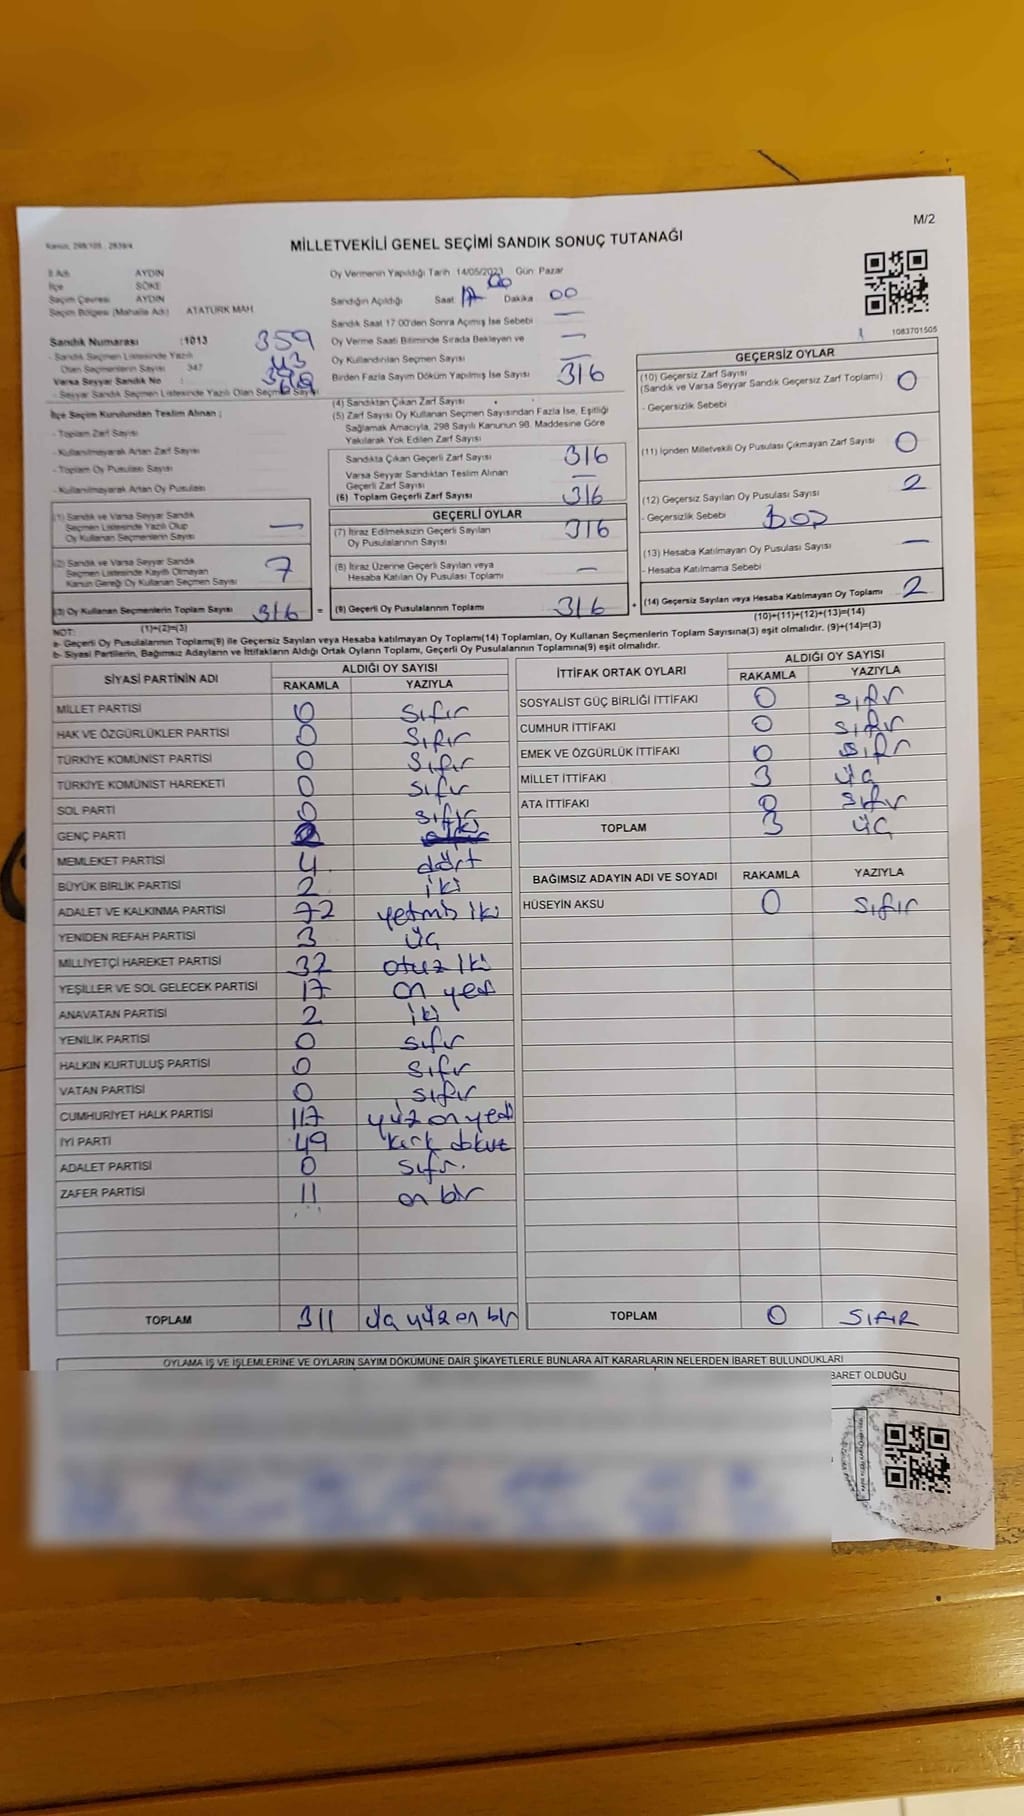 M/2
Kanun, 298/105 , 2839/4
MİLLETVEKİLİ GENEL SEÇİMİ SANDIK SONUÇ TUTANAĞI
İl Adı AYDIN
İlçe SÖKE
Seçim Çevresi AYDIN
Seçim Bölgesi (Mahalle Adı) ATATÜRK MAH
Sandık Numarası :1013
- Sandık Seçmen Listesinde Yazılı
Olan Seçmenlerin Sayısı 347
Varsa Seyyar Sandık No :
- Seyyar Sandık Seçmen Listesinde Yazılı Olan Seçmen Sayısı
359
43
Oy Vermenin Yapıldığı Tarih 14/05/2023 Gün Pazar
Sandığın Açıldığı Saat 17 00 Dakika 00
Sandık Saat 17:00'den Sonra Açımış İse Sebebi —
Oy Verme Saati Bitiminde Sırada Bekleyen ve —
Oy Kullandırılan Seçmen Sayısı —
Birden Fazla Sayım Döküm Yapılmış İse Sayısı 316
1083701505
İlçe Seçim Kurulundan Teslim Alınan ;
- Toplam Zarf Sayısı
- Kullanılmayarak Artan Zarf Sayısı
- Toplam Oy Pusulası Sayısı
- Kullanılmayarak Artan Oy Pusulası
(1) Sandık ve Varsa Seyyar Sandık
Seçmen Listesinde Yazılı Olup
Oy Kullanan Seçmenlerin Sayısı —
(2) Sandık ve Varsa Seyyar Sandık
Seçmen Listesinde Kayıtlı Olmayan
Kanun Gereği Oy Kullanan Seçmen Sayısı 7
(3) Oy Kullanan Seçmenlerin Toplam Sayısı 316 =
(1)+(2)=(3)
(4) Sandıktan Çıkan Zarf Sayısı
(5) Zarf Sayısı Oy Kullanan Seçmen Sayısından Fazla İse, Eşitliği
Sağlamak Amacıyla, 298 Sayılı Kanunun 98. Maddesine Göre
Yakılarak Yok Edilen Zarf Sayısı
Sandıkta Çıkan Geçerli Zarf Sayısı 316
Varsa Seyyar Sandıktan Teslim Alınan
Geçerli Zarf Sayısı —
(6) Toplam Geçerli Zarf Sayısı 316
GEÇERLİ OYLAR
(7) İtiraz Edilmeksizin Geçerli Sayılan
Oy Pusulalarının Sayısı 316
(8) İtiraz Üzerine Geçerli Sayılan veya
Hesaba Katılan Oy Pusulası Toplamı —
(9) Geçerli Oy Pusulalarının Toplamı 316 +
GEÇERSİZ OYLAR
(10) Geçersiz Zarf Sayısı
(Sandık ve Varsa Seyyar Sandık Geçersiz Zarf Toplamı) 0
- Geçersizlik Sebebi
(11) İçinden Milletvekili Oy Pusulası Çıkmayan Zarf Sayısı 0
(12) Geçersiz Sayılan Oy Pusulası Sayısı 2
- Geçersizlik Sebebi
(13) Hesaba Katılmayan Oy Pusulası Sayısı —
- Hesaba Katılmama Sebebi
(14) Geçersiz Sayılan veya Hesaba Katılmayan Oy Toplamı 2
(10)+(11)+(12)+(13)=(14)
NOT:
a- Geçerli Oy Pusulalarının Toplamı(9) ile Geçersiz Sayılan veya Hesaba katılmayan Oy Toplamı(14) Toplamları, Oy Kullanan Seçmenlerin Toplam Sayısına(3) eşit olmalıdır. (9)+(14)=(3)
b- Siyasi Partilerin, Bağımsız Adayların ve İttifakların Aldığı Ortak Oyların Toplamı, Geçerli Oy Pusulalarının Toplamına(9) eşit olmalıdır.
SİYASİ PARTİNİN ADI ALDIĞI OY SAYISI
RAKAMLA YAZIYLA
MİLLET PARTİSİ 0 sıfır
HAK VE ÖZGÜRLÜKLER PARTİSİ 0 sıfır
TÜRKİYE KOMÜNİST PARTİSİ 0 sıfır
TÜRKİYE KOMÜNİST HAREKETİ 0 sıfır
SOL PARTİ 0 sıfır
GENÇ PARTİ
MEMLEKET PARTİSİ 4 dört
BÜYÜK BİRLİK PARTİSİ 2 iki
ADALET VE KALKINMA PARTİSİ 72 yetmiş iki
YENİDEN REFAH PARTİSİ 3 üç
MİLLİYETÇİ HAREKET PARTİSİ 32 otuz iki
YEŞİLLER VE SOL GELECEK PARTİSİ 17 on yedi
ANAVATAN PARTİSİ 2 iki
YENİLİK PARTİSİ 0 sıfır
HALKIN KURTULUŞ PARTİSİ 0 sıfır
VATAN PARTİSİ 0 sıfır
CUMHURİYET HALK PARTİSİ 117 yüz on yedi
İYİ PARTİ 49 kırk dokuz
ADALET PARTİSİ 0 sıfır
ZAFER PARTİSİ 11 on bir
TOPLAM 311 üç yüz on bir
İTTİFAK ORTAK OYLARI ALDIĞI OY SAYISI
RAKAMLA YAZIYLA
SOSYALİST GÜÇ BİRLİĞİ İTTİFAKI 0 sıfır
CUMHUR İTTİFAKI 0 sıfır
EMEK VE ÖZGÜRLÜK İTTİFAKI 0 sıfır
MİLLET İTTİFAKI 3 üç
ATA İTTİFAKI 0 sıfır
TOPLAM 3 üç
BAĞIMSIZ ADAYIN ADI VE SOYADI RAKAMLA YAZIYLA
HÜSEYİN AKSU 0 sıfır
TOPLAM 0 SIFIR
OYLAMA İŞ VE İŞLEMLERİNE VE OYLARIN SAYIM DÖKÜMÜNE DAİR ŞİKAYETLERLE BUNLARA AİT KARARLARIN NELERDEN İBARET BULUNDUKLARI
BARET OLDUĞU